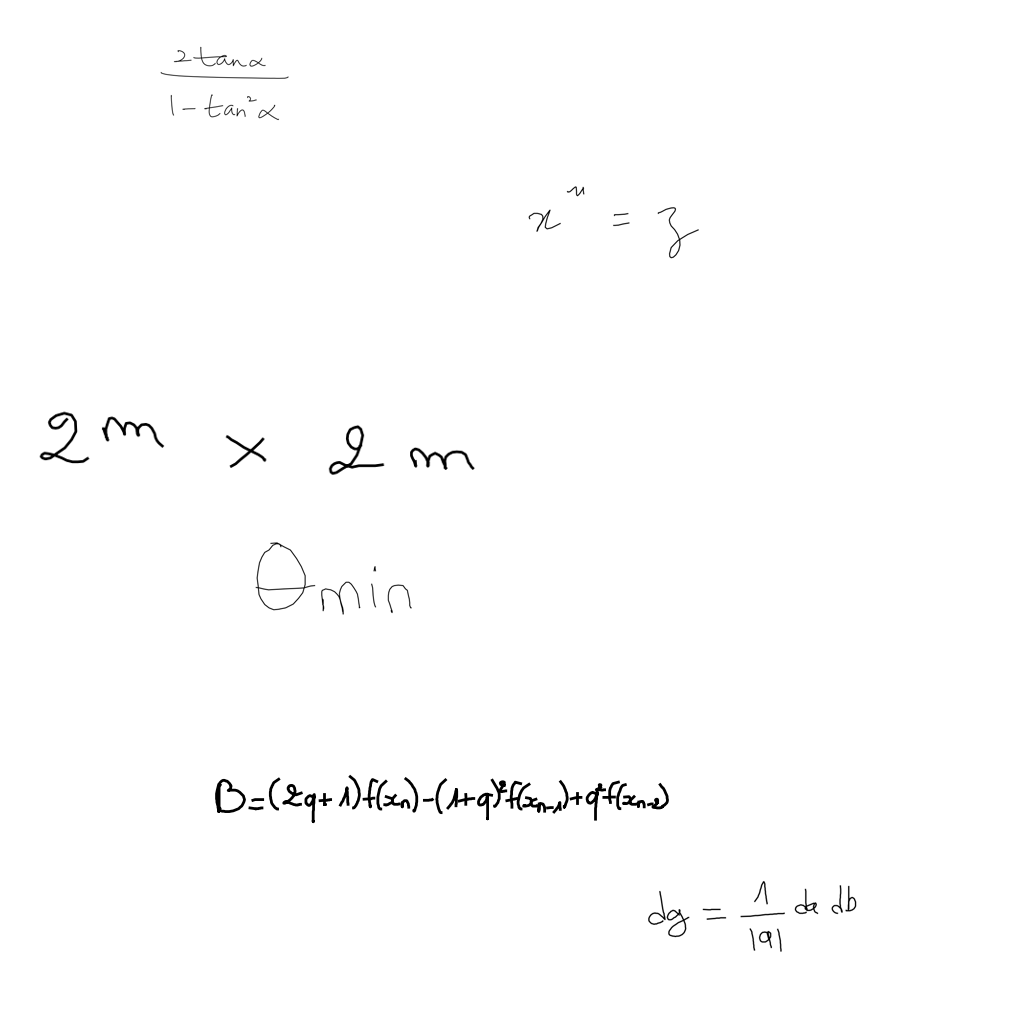 \frac{2 \tan \alpha}{1 - \tan^2 \alpha}
x^n = z
2^m \times 2 m
\theta_{min}
B = (2q + 1) f(x_n) - (1 + q)^2 f(x_{n-1}) + q^2 f(x_{n-2})
dg = \frac{1}{|a|} da db